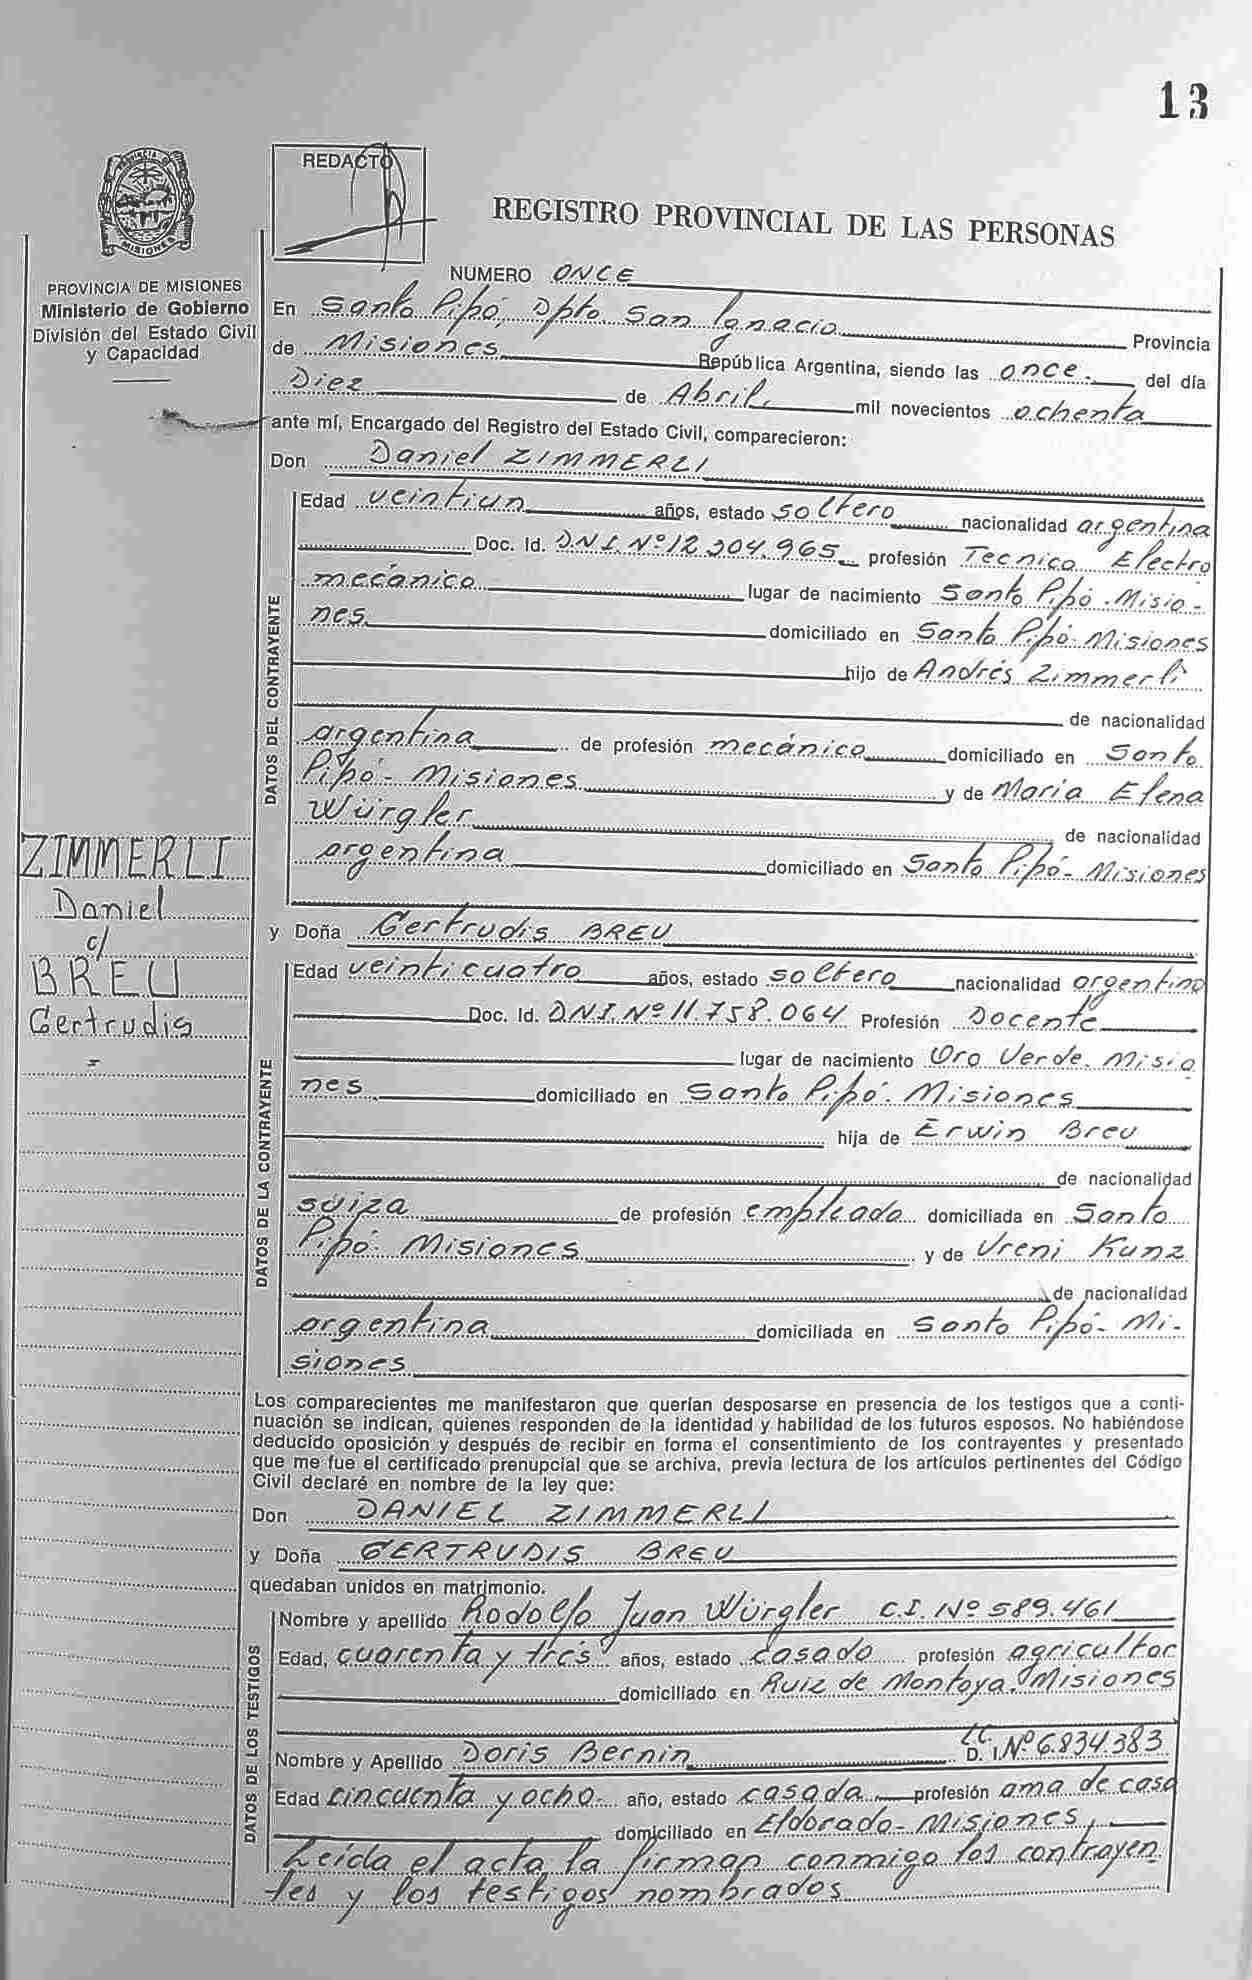 13
PROVINCIA DE
MISIONES
REDACTO
REGISTRO PROVINCIAL DE LAS PERSONAS
PROVINCIA DE MISIONES
Ministerio de Gobierno
División del Estado Civil
y Capacidad
NUMERO ONCE
En Santo Pipó, Dpto San Ignacio Provincia
de Misiones República Argentina, siendo las once. del día
Diez de Abril, mil novecientos ochenta
ante mí, Encargado del Registro del Estado Civil, comparecieron:
Don Daniel ZIMMERLI
DATOS DEL CONTRAYENTE
Edad veintiun años, estado soltero nacionalidad argentina
Doc. Id. DNI. Nº 12.304.965 profesión Tecnico Electro
mecánico lugar de nacimiento Santo Pipó - Misio-
nes domiciliado en Santo Pipó - Misiones
hijo de Andrés Zimmerli
de nacionalidad
argentina de profesión mecánico domiciliado en Santo
Pipó - Misiones y de María Elena
Würgler de nacionalidad
argentina domiciliado en Santo Pipó - Misiones
ZIMMERLI
Daniel
c/
BREU
Gertrudis
=
y Doña Gertrudis BREU
DATOS DE LA CONTRAYENTE
Edad veinticuatro años, estado soltero nacionalidad argentina
Doc. Id. DNI. Nº 11.758.064 Profesión Docente
lugar de nacimiento Oro Verde. Misio
nes domiciliado en Santo Pipó. Misiones
hija de Erwin Breu
de nacionalidad
suiza de profesión empleado domiciliada en Santo
Pipó. Misiones y de Vreni Kunz
de nacionalidad
argentina domiciliada en Santo Pipó - Mi-
siones
Los comparecientes me manifestaron que querían desposarse en presencia de los testigos que a conti-
nuación se indican, quienes responden de la identidad y habilidad de los futuros esposos. No habiéndose
deducido oposición y después de recibir en forma el consentimiento de los contrayentes y presentado
que me fue el certificado prenupcial que se archiva, previa lectura de los artículos pertinentes del Código
Civil declaré en nombre de la ley que:
Don DANIEL ZIMMERLI
y Doña GERTRUDIS BREU
quedaban unidos en matrimonio.
DATOS DE LOS TESTIGOS
Nombre y apellido Rodolfo Juan Würgler C.I. Nº 589.461
Edad, cuarenta y tres años, estado casado profesión agricultor
domiciliado en Ruiz de Montoya. Misiones
Nombre y Apellido Doris Bernin L.C. D. I. Nº 6.834.383
Edad cincuenta y ocho año, estado casada profesión ama de casa
domiciliado en Eldorado - Misiones,
Leída el acta la firman conmigo los contrayen
tes y los testigos nombrados